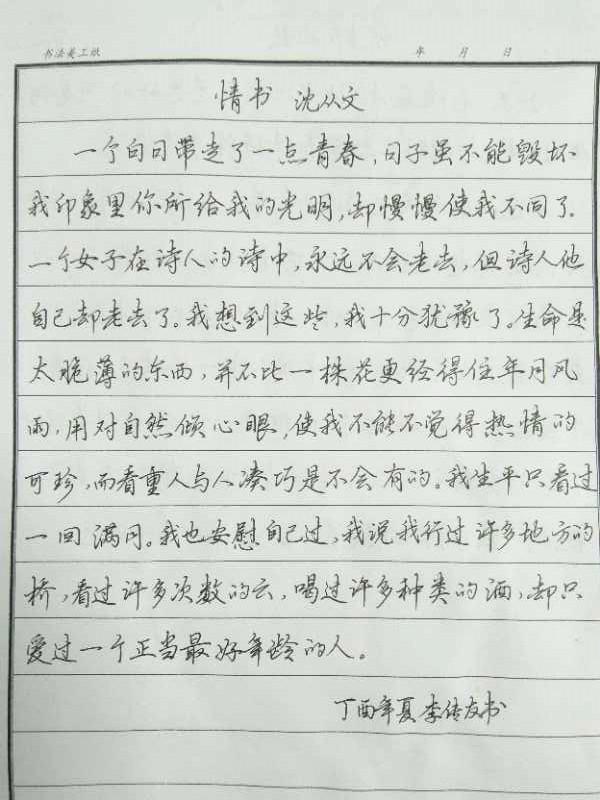 书法美工纸 年 月 日
情书 沈从文
一个白日带走了一点青春，日子虽不能毁坏
我印象里你所给我的光明，却慢慢使我不同了。
一个女子在诗人的诗中，永远不会老去，但诗人他
自己却老去了。我想到这些，我十分犹豫了。生命是
太脆薄的东西，并不比一株花更经得住年月风
雨，用对自然倾心眼，使我不能不觉得热情的
可珍，而看重人与人凑巧是不会有的。我生平只看过
一回满月。我也安慰自己过，我说我行过许多地方的
桥，看过许多次数的云，喝过许多种类的酒，却只
爱过一个正当最好年龄的人。
丁酉年夏李传友书